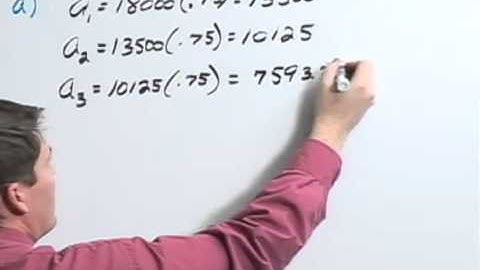 a) a₁ = 18000(.75) = 13500
a₂ = 13500(.75) = 10125
a₃ = 10125(.75) = 7593